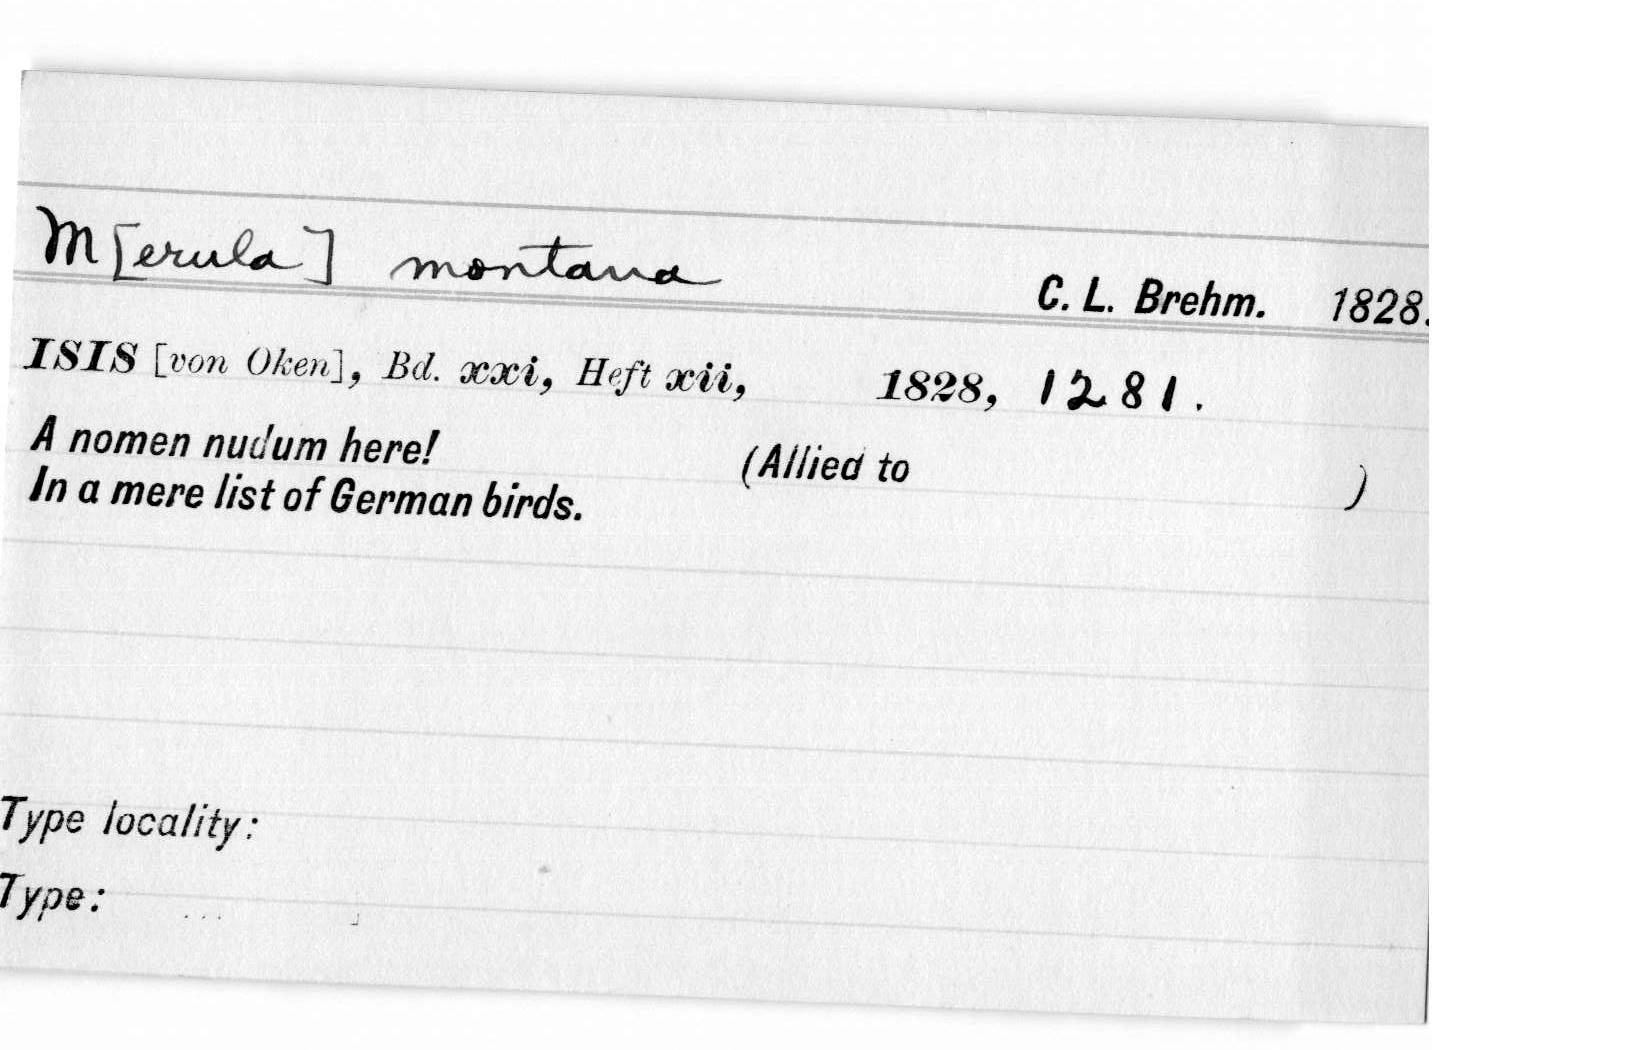 M[erula] montana
C. L. Brehm. 1828.
ISIS [von Oken], Bd. xxi, Heft xii, 1828, 1281.
A nomen nudum here! (Allied to )
In a mere list of German birds.
Type locality:
Type: